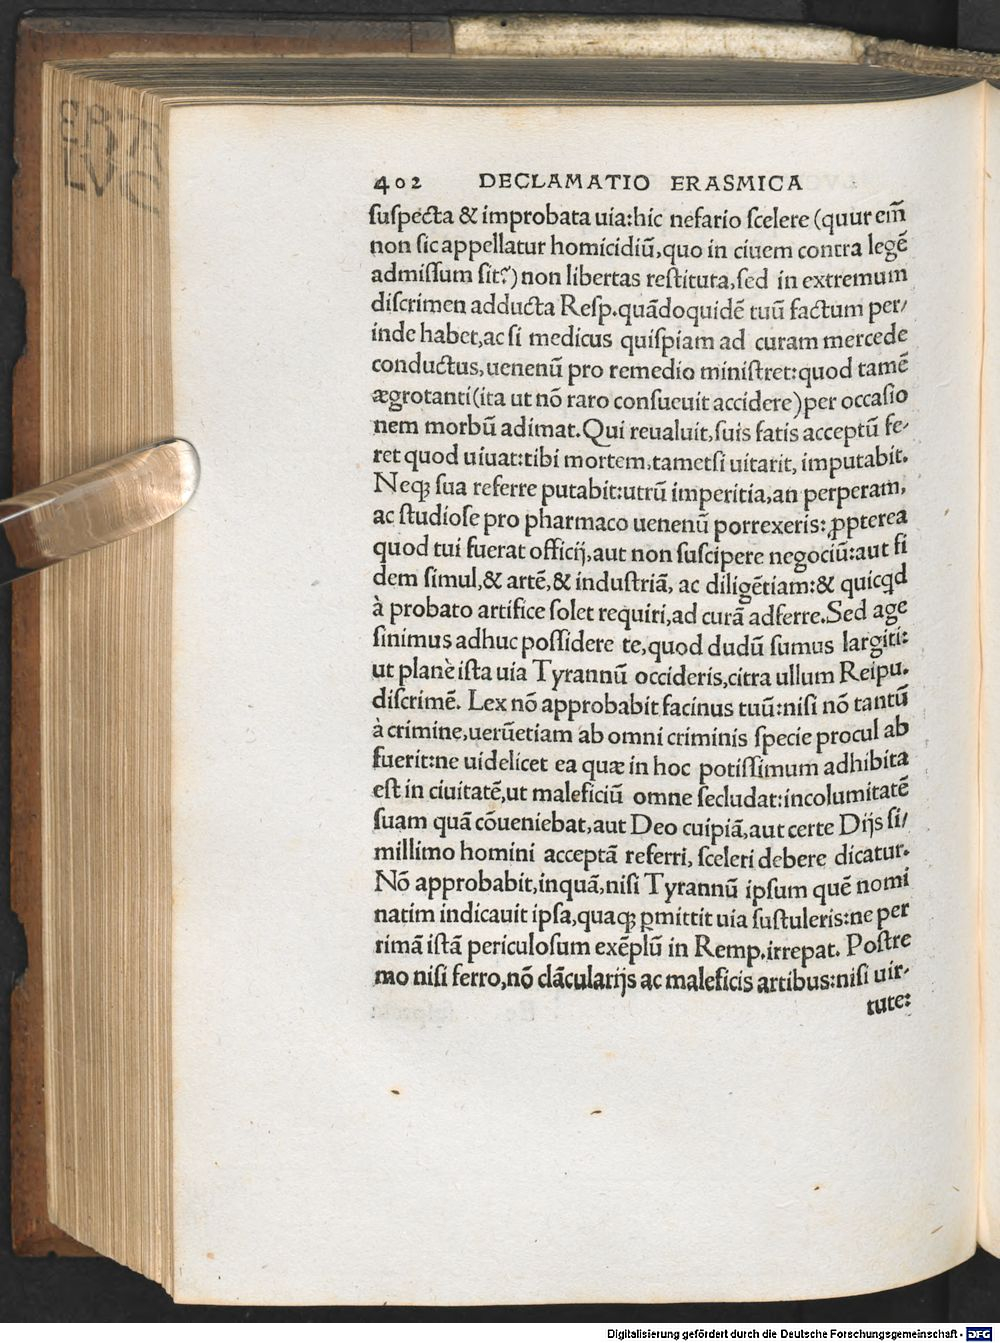 402 DECLAMATIO ERASMICA
ſuſpecta & improbata uia:hic nefario ſcelere (quur em̃
non ſic appellatur homicidiũ,quo in ciuem contra legẽ
admiſſum ſit?) non libertas reſtituta,ſed in extremum
diſcrimen adducta Reſp.quãdoquidẽ tuũ factum per/
inde habet,ac ſi medicus quiſpiam ad curam mercede
conductus,uenenũ pro remedio miniſtret:quod tamẽ
ægrotanti(ita ut nõ raro conſueuit accidere)per occaſio
nem morbũ adimat.Qui reualuit,ſuis fatis acceptũ fe/
ret quod uiuat:tibi mortem,tametſi uitarit, imputabit.
Neqꝫ ſua referre putabit:utrũ imperitia,an perperam,
ac ſtudioſe pro pharmaco uenenũ porrexeris: ꝓpterea
quod tui fuerat officij,aut non ſuſcipere negociũ:aut fi
dem ſimul,& artẽ,& induſtriã, ac diligẽtiam:& quicqd
à probato artifice ſolet requiri,ad curã adferre.Sed age
ſinimus adhuc poſſidere te,quod dudũ ſumus largiti:
ut planè iſta uia Tyrannũ occideris,citra ullum Reipu.
diſcrimẽ. Lex nõ approbabit facinus tuũ:niſi nõ tantũ
à crimine,uerũetiam ab omni criminis ſpecie procul ab
fuerit:ne uidelicet ea quæ in hoc potiſſimum adhibita
eſt in ciuitatẽ,ut maleficiũ omne ſecludat:incolumitatẽ
ſuam quã cõueniebat,aut Deo cuipiã,aut certe Dijs ſi/
millimo homini acceptã referri, ſceleri debere dicatur.
Nõ approbabit,inquã,niſi Tyrannũ ipſum quẽ nomi
natim indicauit ipſa,quaqꝫ ꝑmittit uia ſuſtuleris:ne per
rimã iſtã periculoſum exẽplũ in Remp.irrepat. Poſtre
mo niſi ferro,nõ clãcularijs ac maleficis artibus:niſi uir/
tute:
Digitalisierung gefördert durch die Deutsche Forschungsgemeinschaft - DFG